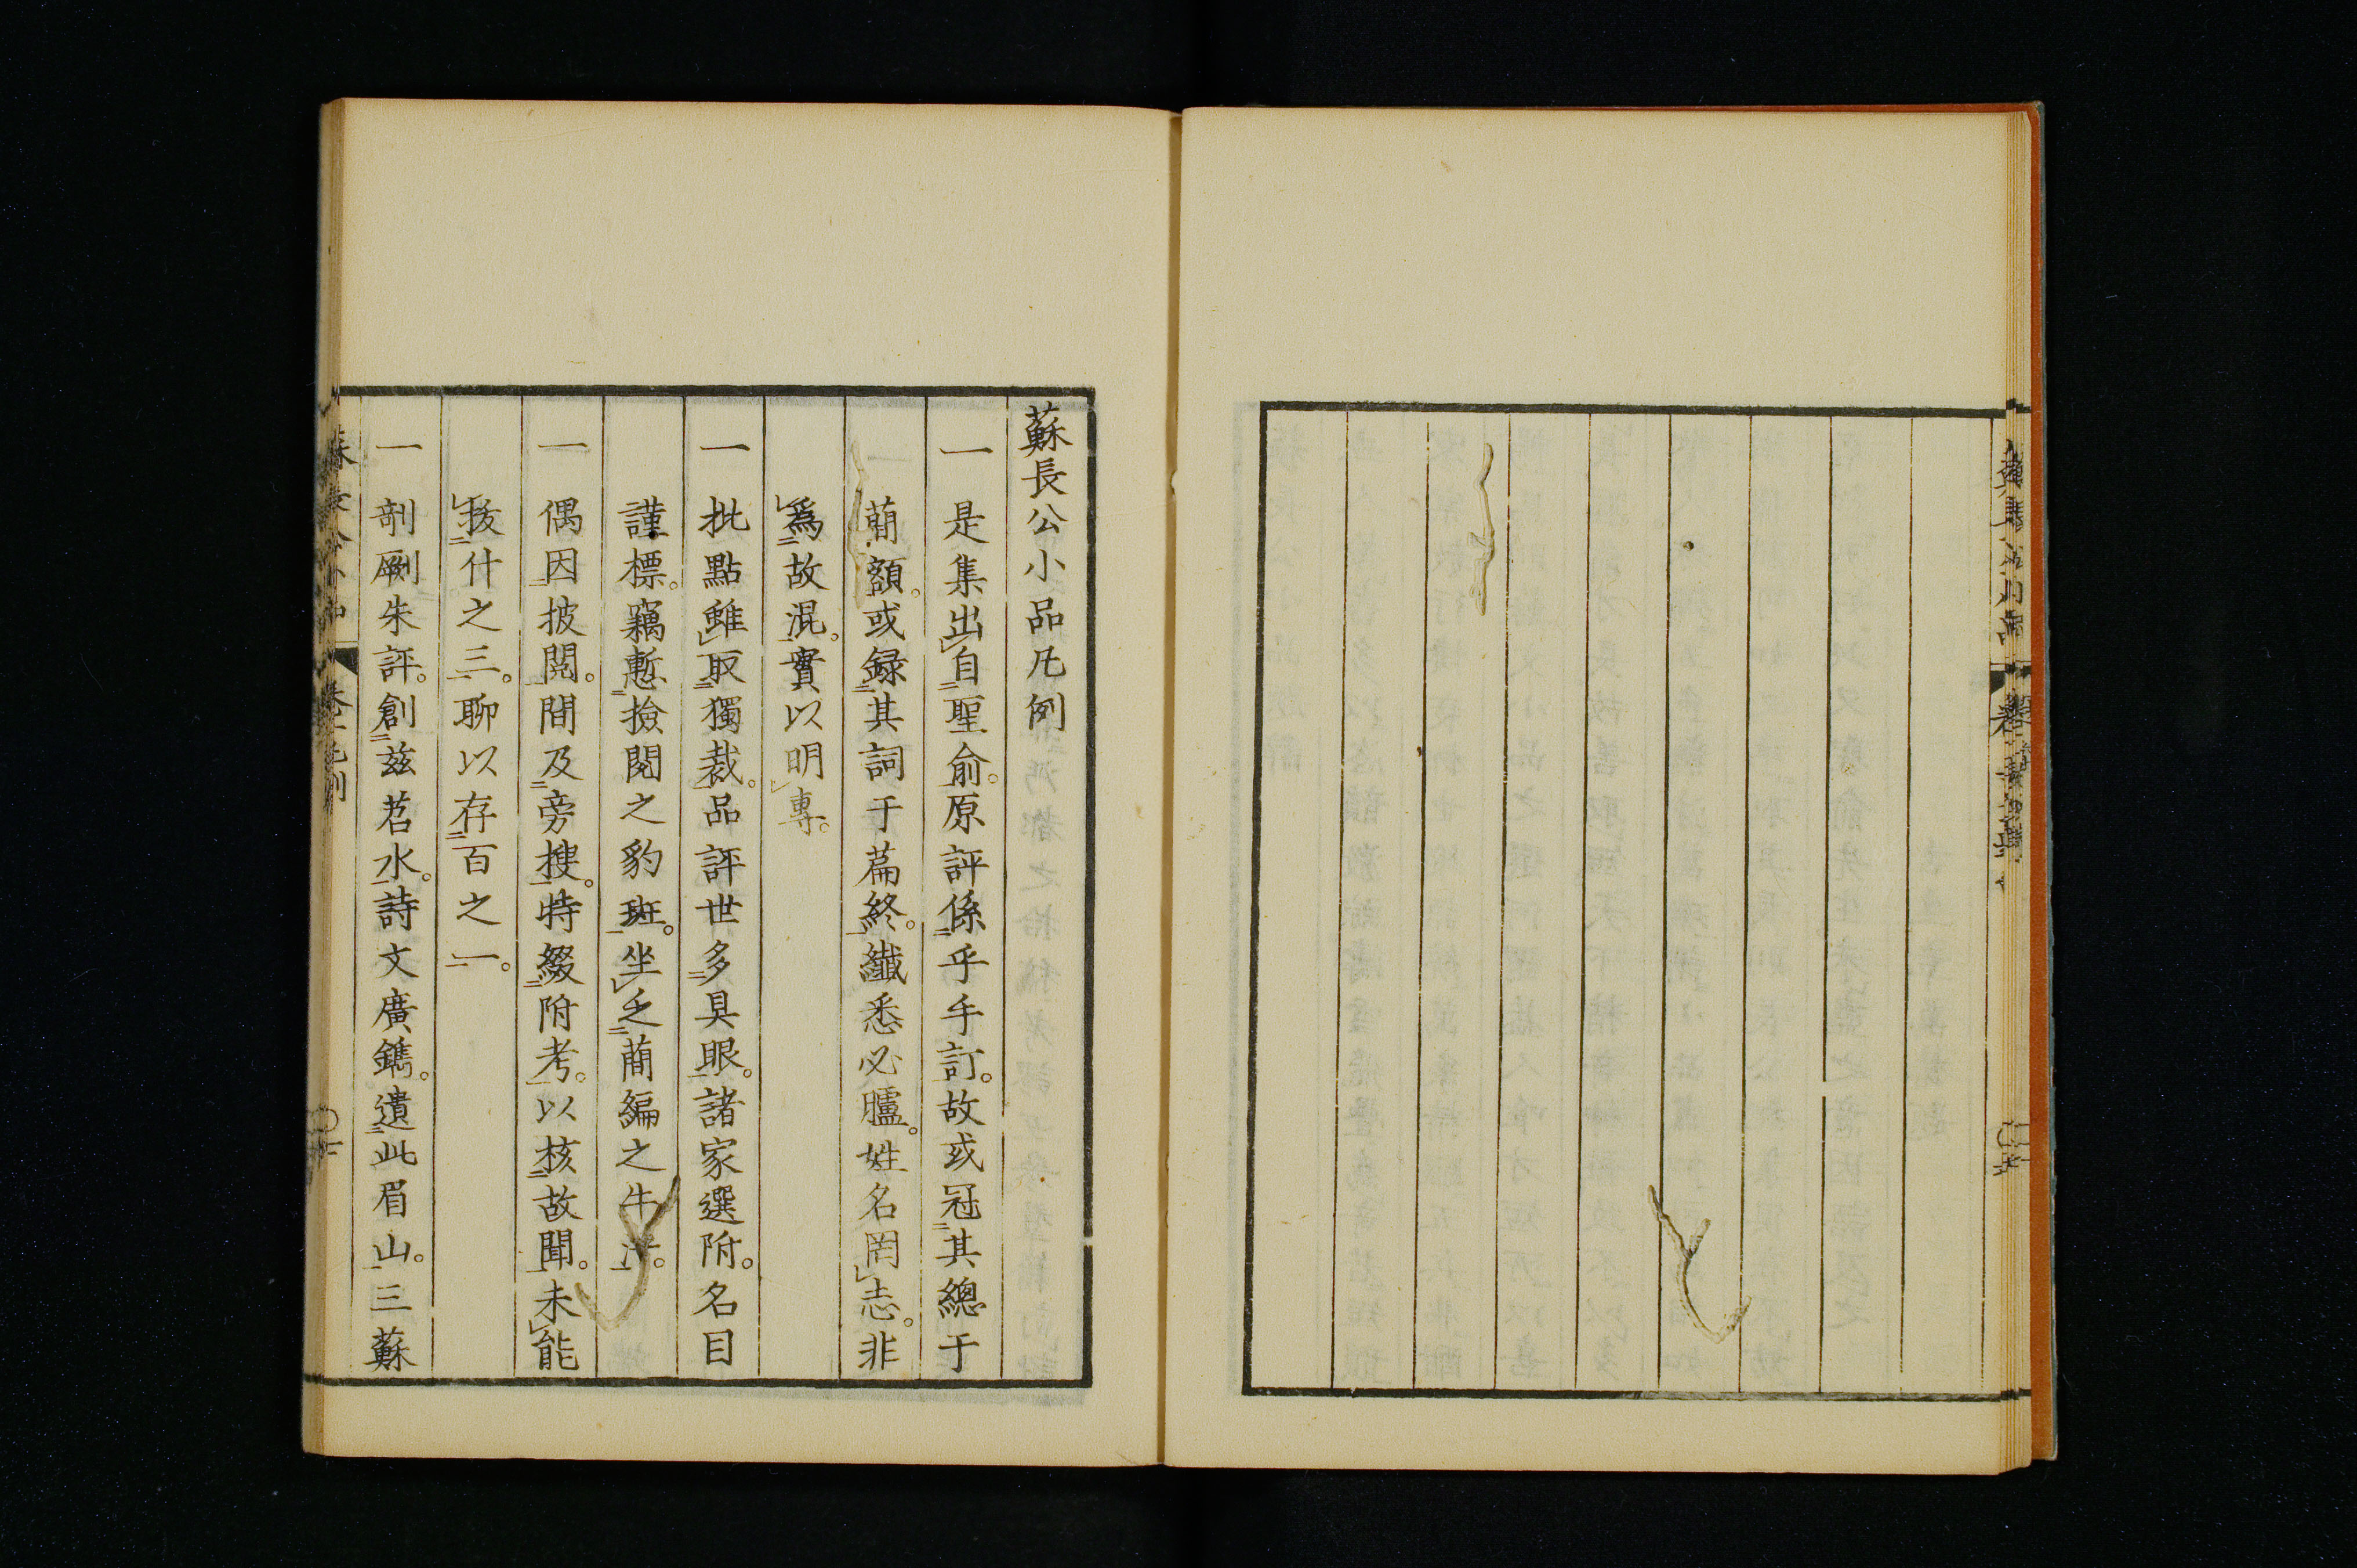 蘇長公小品凡例
一 是集出自聖俞。原評係乎手訂。故或冠其總于
蕳額。或録其詞于篇終。纎悉必臚。姓名罔志。非
爲故混。實以明專。
一 批點雖取獨裁。品評世多具眼。諸家選附。名目
謹標。竊慙撿閱之豹班。坐乏蕳編之牛汗。
一 偶因披閲。間及旁搜。特綴附考。以核故聞。未能
拔什之三。聊以存百之一。
一 剞劂朱評。創兹苕水。詩文廣鐫。遺此眉山。三蘇